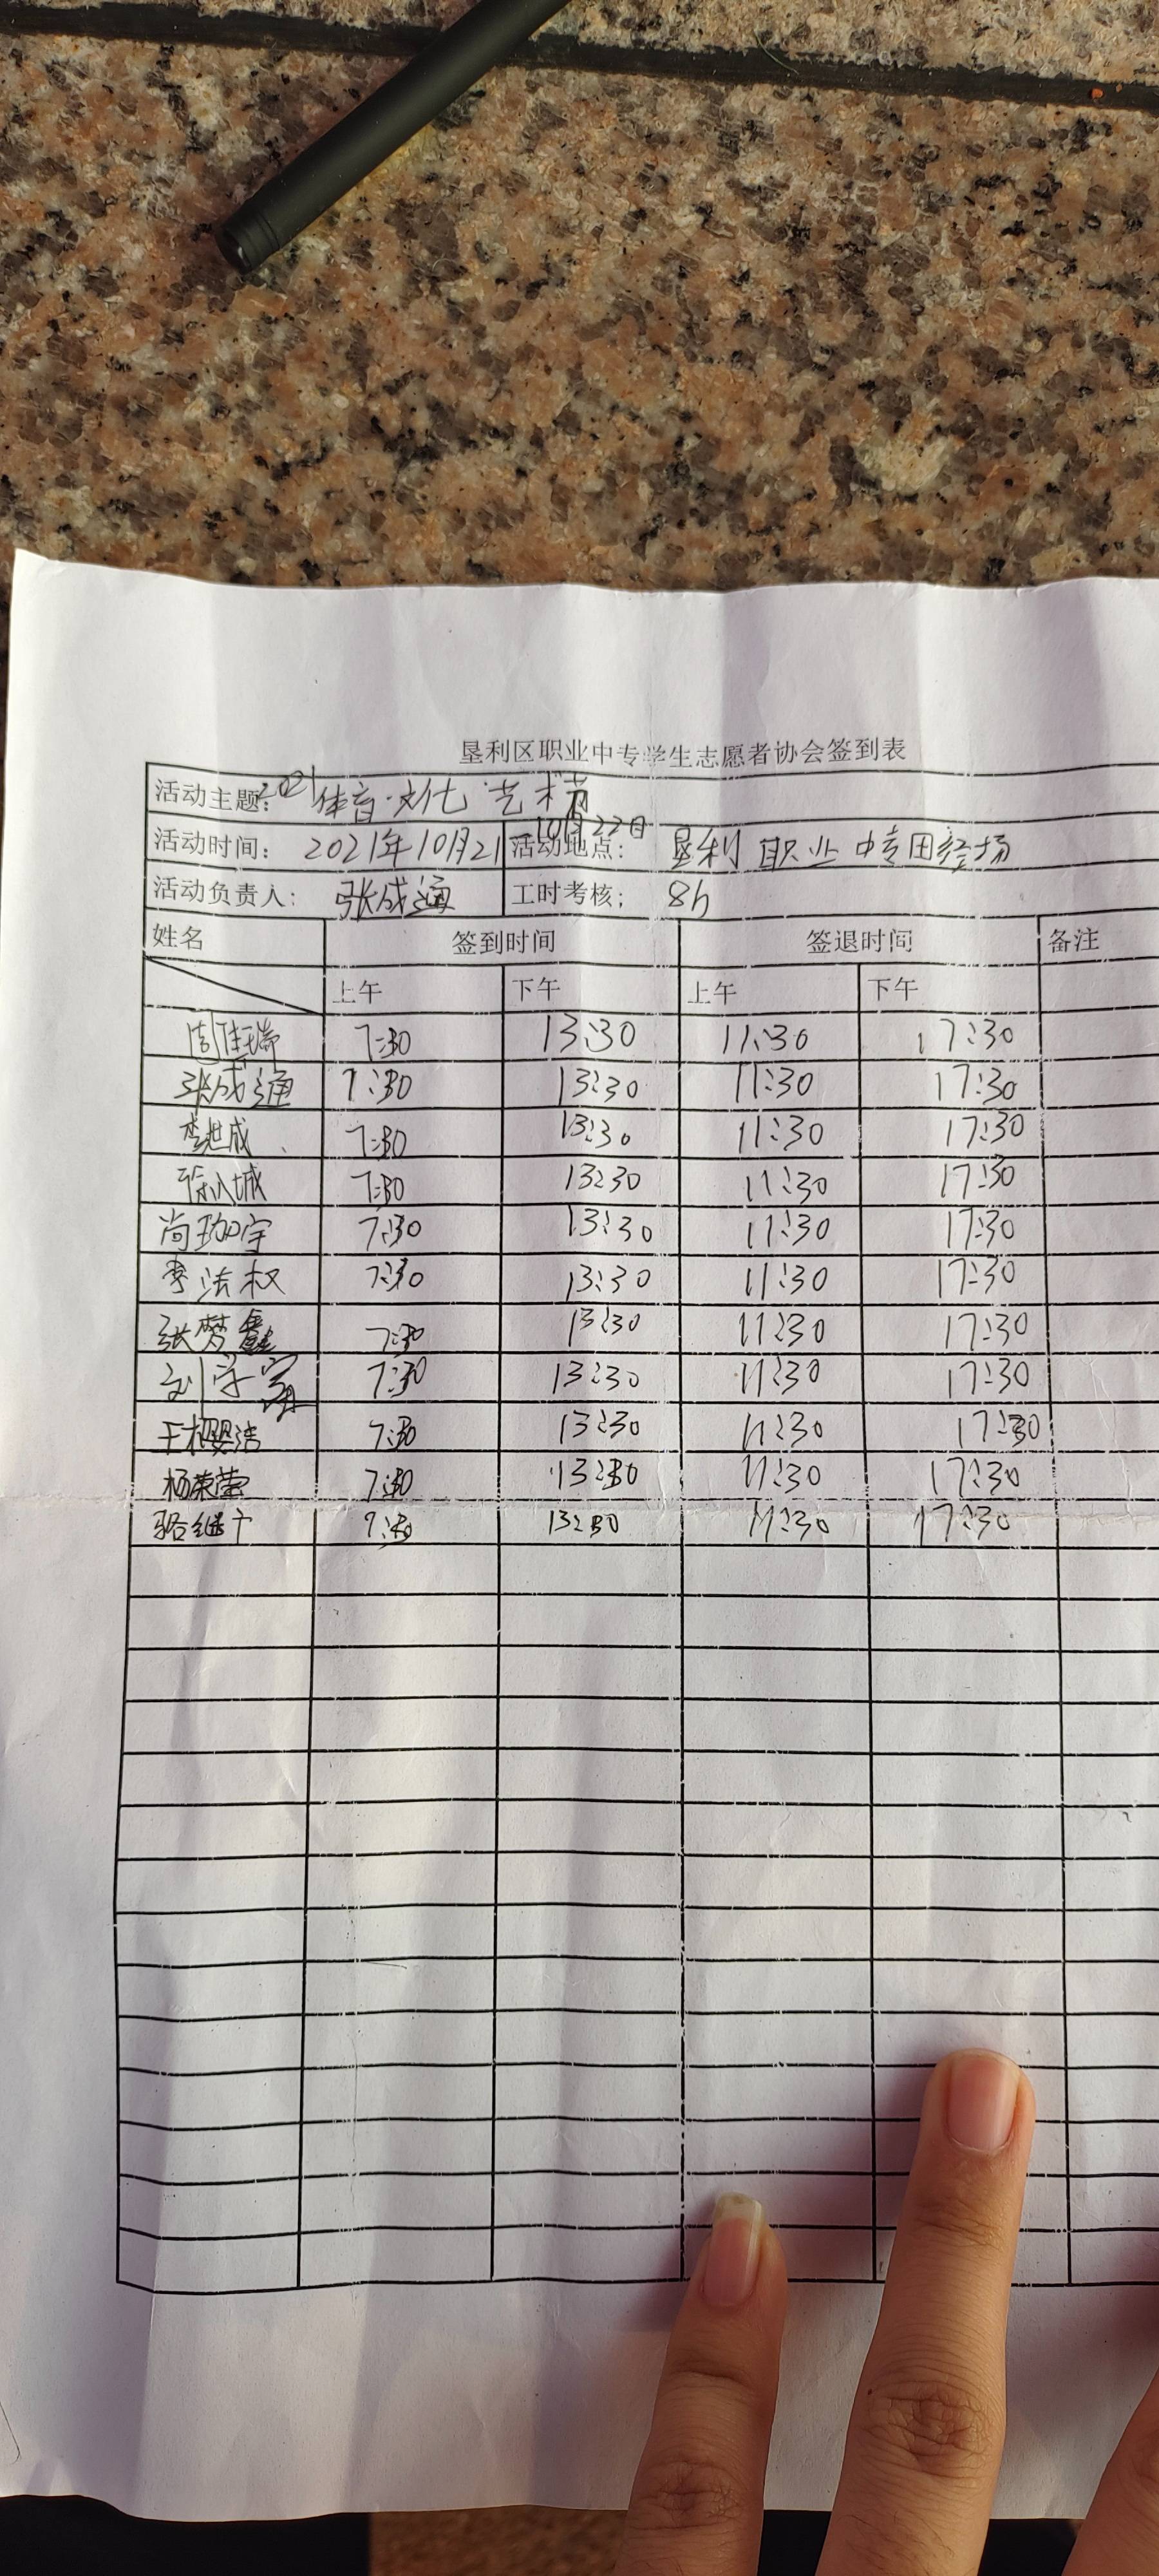 垦利区职业中专学生志愿者协会签到表
活动主题：2021体育·文化·艺术节
活动时间：2021年10月21—10月22日 活动地点：垦利职业中专田径场
活动负责人：张成通 工时考核；8h
姓名 签到时间 签退时间 备注
上午 下午 上午 下午
周佳瑞 7:30 13:30 11:30 17:30
张成通 7:30 13:30 11:30 17:30
李世成 7:30 13:30 11:30 17:30
7:30 13:30 11:30 17:30
尚珈宇 7:30 13:30 11:30 17:30
李法权 7:30 13:30 11:30 17:30
张梦鑫 7:30 13:30 11:30 17:30
7:30 13:30 11:30 17:30
王樱洁 7:30 13:30 11:30 17:30
杨荣莹 7:30 13:30 11:30 17:30
骆继千 7:30 13:30 11:30 17:30